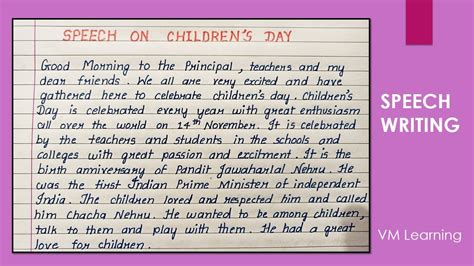 SPEECH ON CHILDREN'S DAY
Good Morning to the Principal, teachers and my
dear friends. We all are very excited and have
gathered here to celebrate children's day. Children's
Day is celebrated every year with great enthusiasm
all over the world on 14th November. It is celebrated
by the teachers and students in the schools and
colleges with great passion and excitment. It is the
birth anniversary of Pandit Jawaharlal Nehru. He
was the first Indian Prime Minister of independent
India. The children loved and respected him and called
him Chacha Nehru. He wanted to be among children,
talk to them and play with them. He had a great
love for children.
SPEECH
WRITING
VM Learning